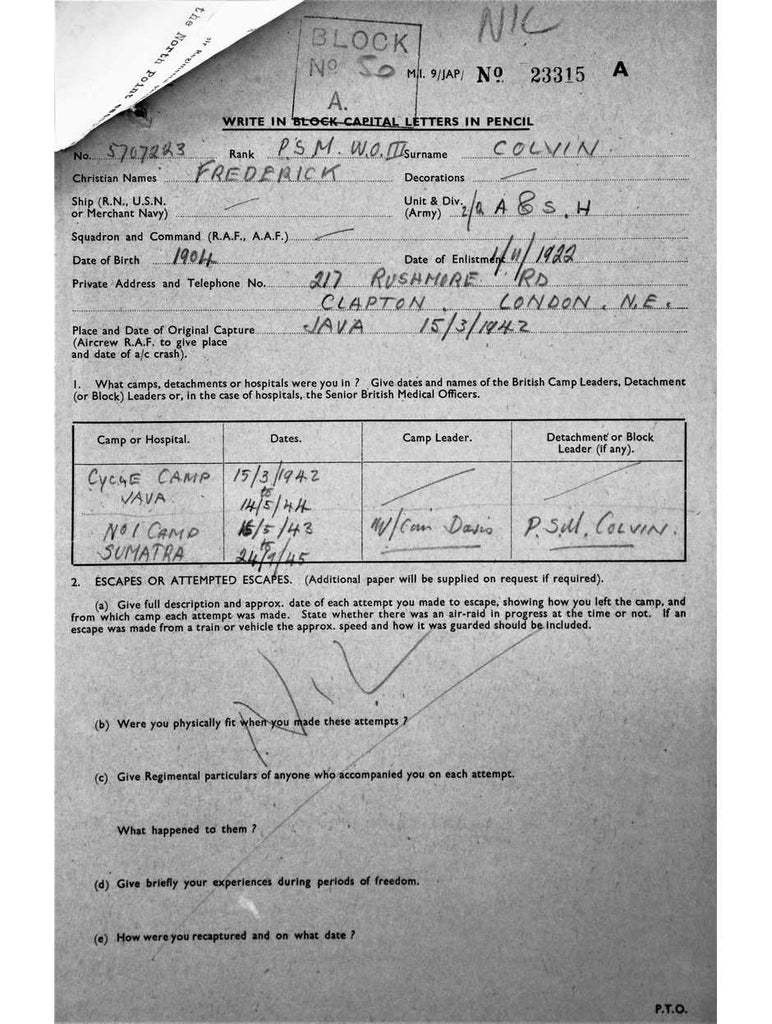 the North Point
NIL
BLOCK
No 50
A.
M.I. 9/JAP/ No 23315 A
WRITE IN BLOCK CAPITAL LETTERS IN PENCIL
No. 5707223 Rank P.S.M. W.O.III Surname COLVIN
Christian Names FREDERICK Decorations —
Ship (R.N., U.S.N. or Merchant Navy) — Unit & Div. (Army) A & S. H
Squadron and Command (R.A.F., A.A.F.) —
Date of Birth 1904 Date of Enlistment 1/11/1922
Private Address and Telephone No. 217 RUSHMORE RD
CLAPTON. LONDON. N.E.
Place and Date of Original Capture JAVA 15/3/1942
(Aircrew R.A.F. to give place
and date of a/c crash).
1. What camps, detachments or hospitals were you in ? Give dates and names of the British Camp Leaders, Detachment
(or Block) Leaders or, in the case of hospitals, the Senior British Medical Officers.
Camp or Hospital. Dates. Camp Leader. Detachment or Block
Leader (if any).
CYCLE CAMP 15/3/1942
JAVA to 14/5/44
No 1 CAMP 16/5/43 W/Com Davis P.S.M. COLVIN.
SUMATRA to 24/9/45
2. ESCAPES OR ATTEMPTED ESCAPES. (Additional paper will be supplied on request if required).
(a) Give full description and approx. date of each attempt you made to escape, showing how you left the camp, and
from which camp each attempt was made. State whether there was an air-raid in progress at the time or not. If an
escape was made from a train or vehicle the approx. speed and how it was guarded should be included.
NIL
(b) Were you physically fit when you made these attempts ?
(c) Give Regimental particulars of anyone who accompanied you on each attempt.
What happened to them ?
(d) Give briefly your experiences during periods of freedom.
(e) How were you recaptured and on what date ?
P.T.O.